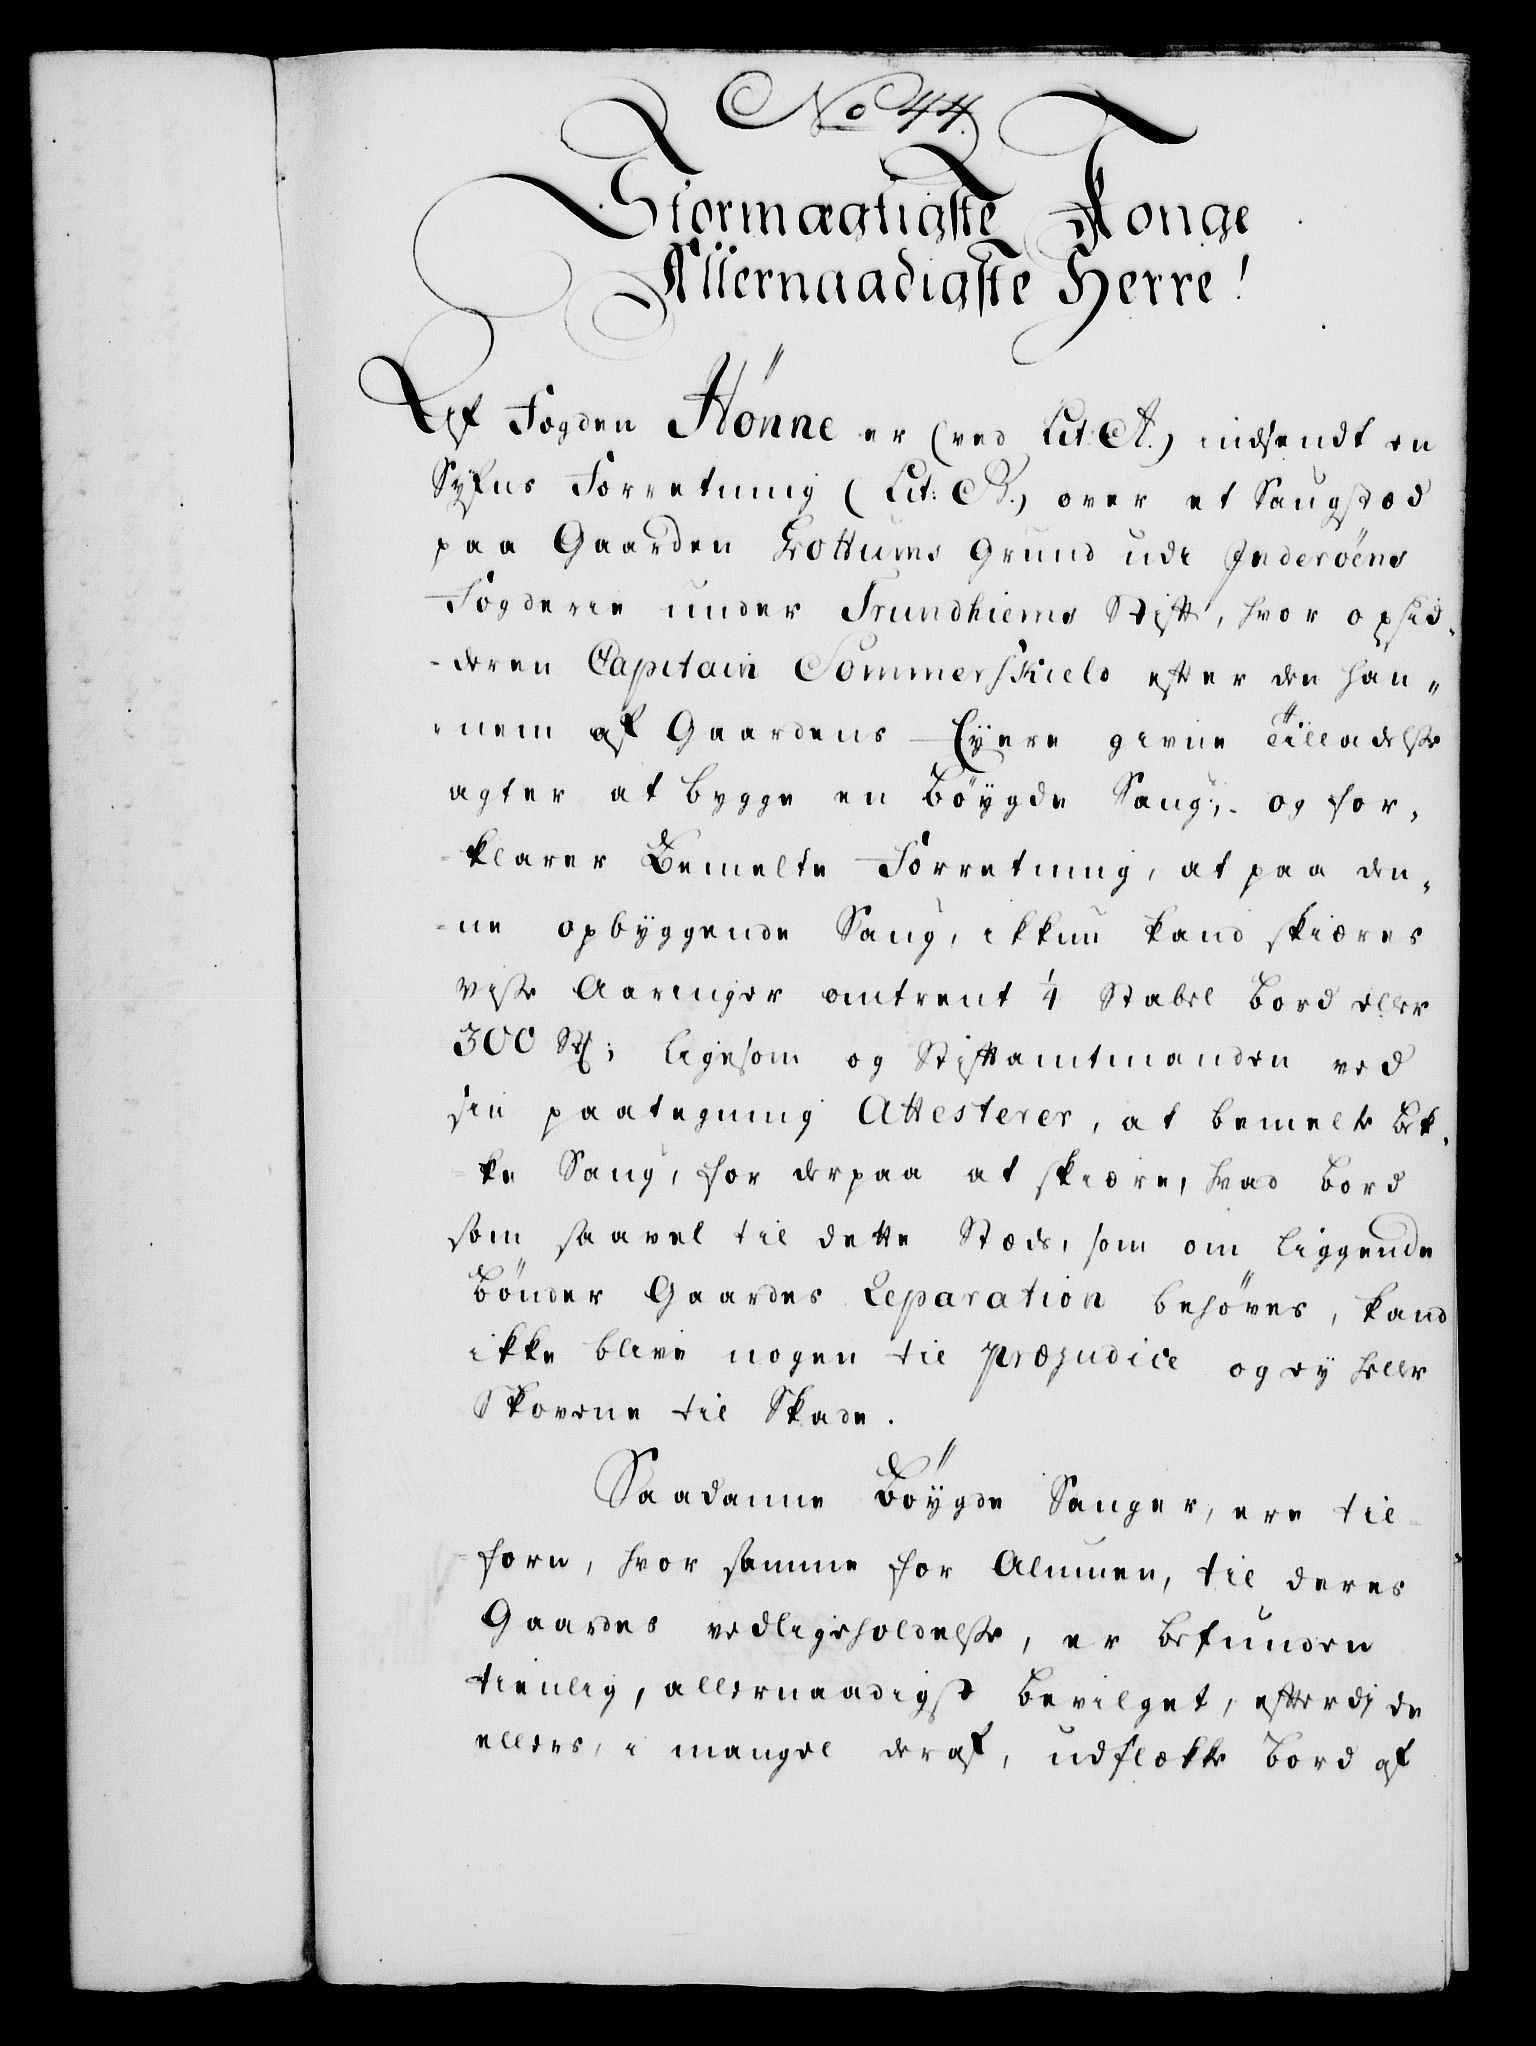 No 44.
Stormægtigste Konge
Allernaadigste Herre!
Af Fogden Hönne er (ved Lit: A.) indsendt en
Syhns Forretning (Lit: B.) over et Saugstæd
paa Gaarden Grund udi Inderöens
Fogderie under Trundhiems Stift, hvor opsid„
-deren Capitain Sommerskield efter den han„
„nem af Gaardens Eÿere givne Tilladelse
agter at bygge en Böÿgde Saug; og for„
-klarer Bemelte Forretning, at paa den„
-ne opbÿggende Saug, ikkun kand skiæres
visse Aaringer omtrent 1/4 Stabel Bord eller
300 St; ligesom og Stiftamtmanden ved
sin paategning Attesterer, at bemelte Bek„
-ke Saug, for derpaa at skiære, hvad Bord
som saavel til dette Stæds, som om liggende
Bönder Gaardes Reparation behöves, kand
ikke blive nogen til Præjudice og eÿ heller
Skovene til Skade.
Saadanne Böÿgde Sauger, ere til-
-forn, hvor samme for Almuen, til deres
Gaardes vedligeholdelse, er befunden
tienlig, allernaadigst bevilget, efterdi de
ellers, i mangel deraf, udflække Bord af